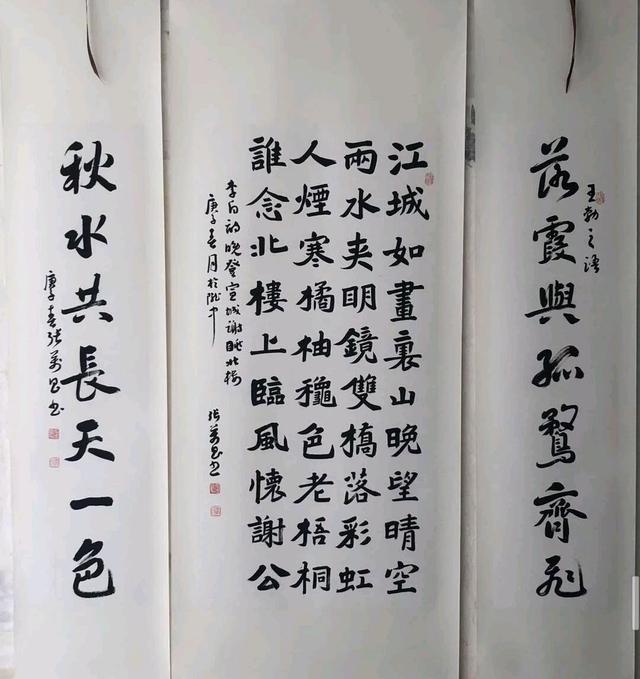 王勃之語
落霞與孤鶩齊飛
江城如畫裏山晚望晴空
兩水夾明鏡雙橋落彩虹
人煙寒橘柚穐色老梧桐
誰念北樓上臨風懷謝公
李白詩晚登宣城謝眺北樓
庚子春月於隴中
張萬昌书
秋水共長天一色
庚子春張萬昌书